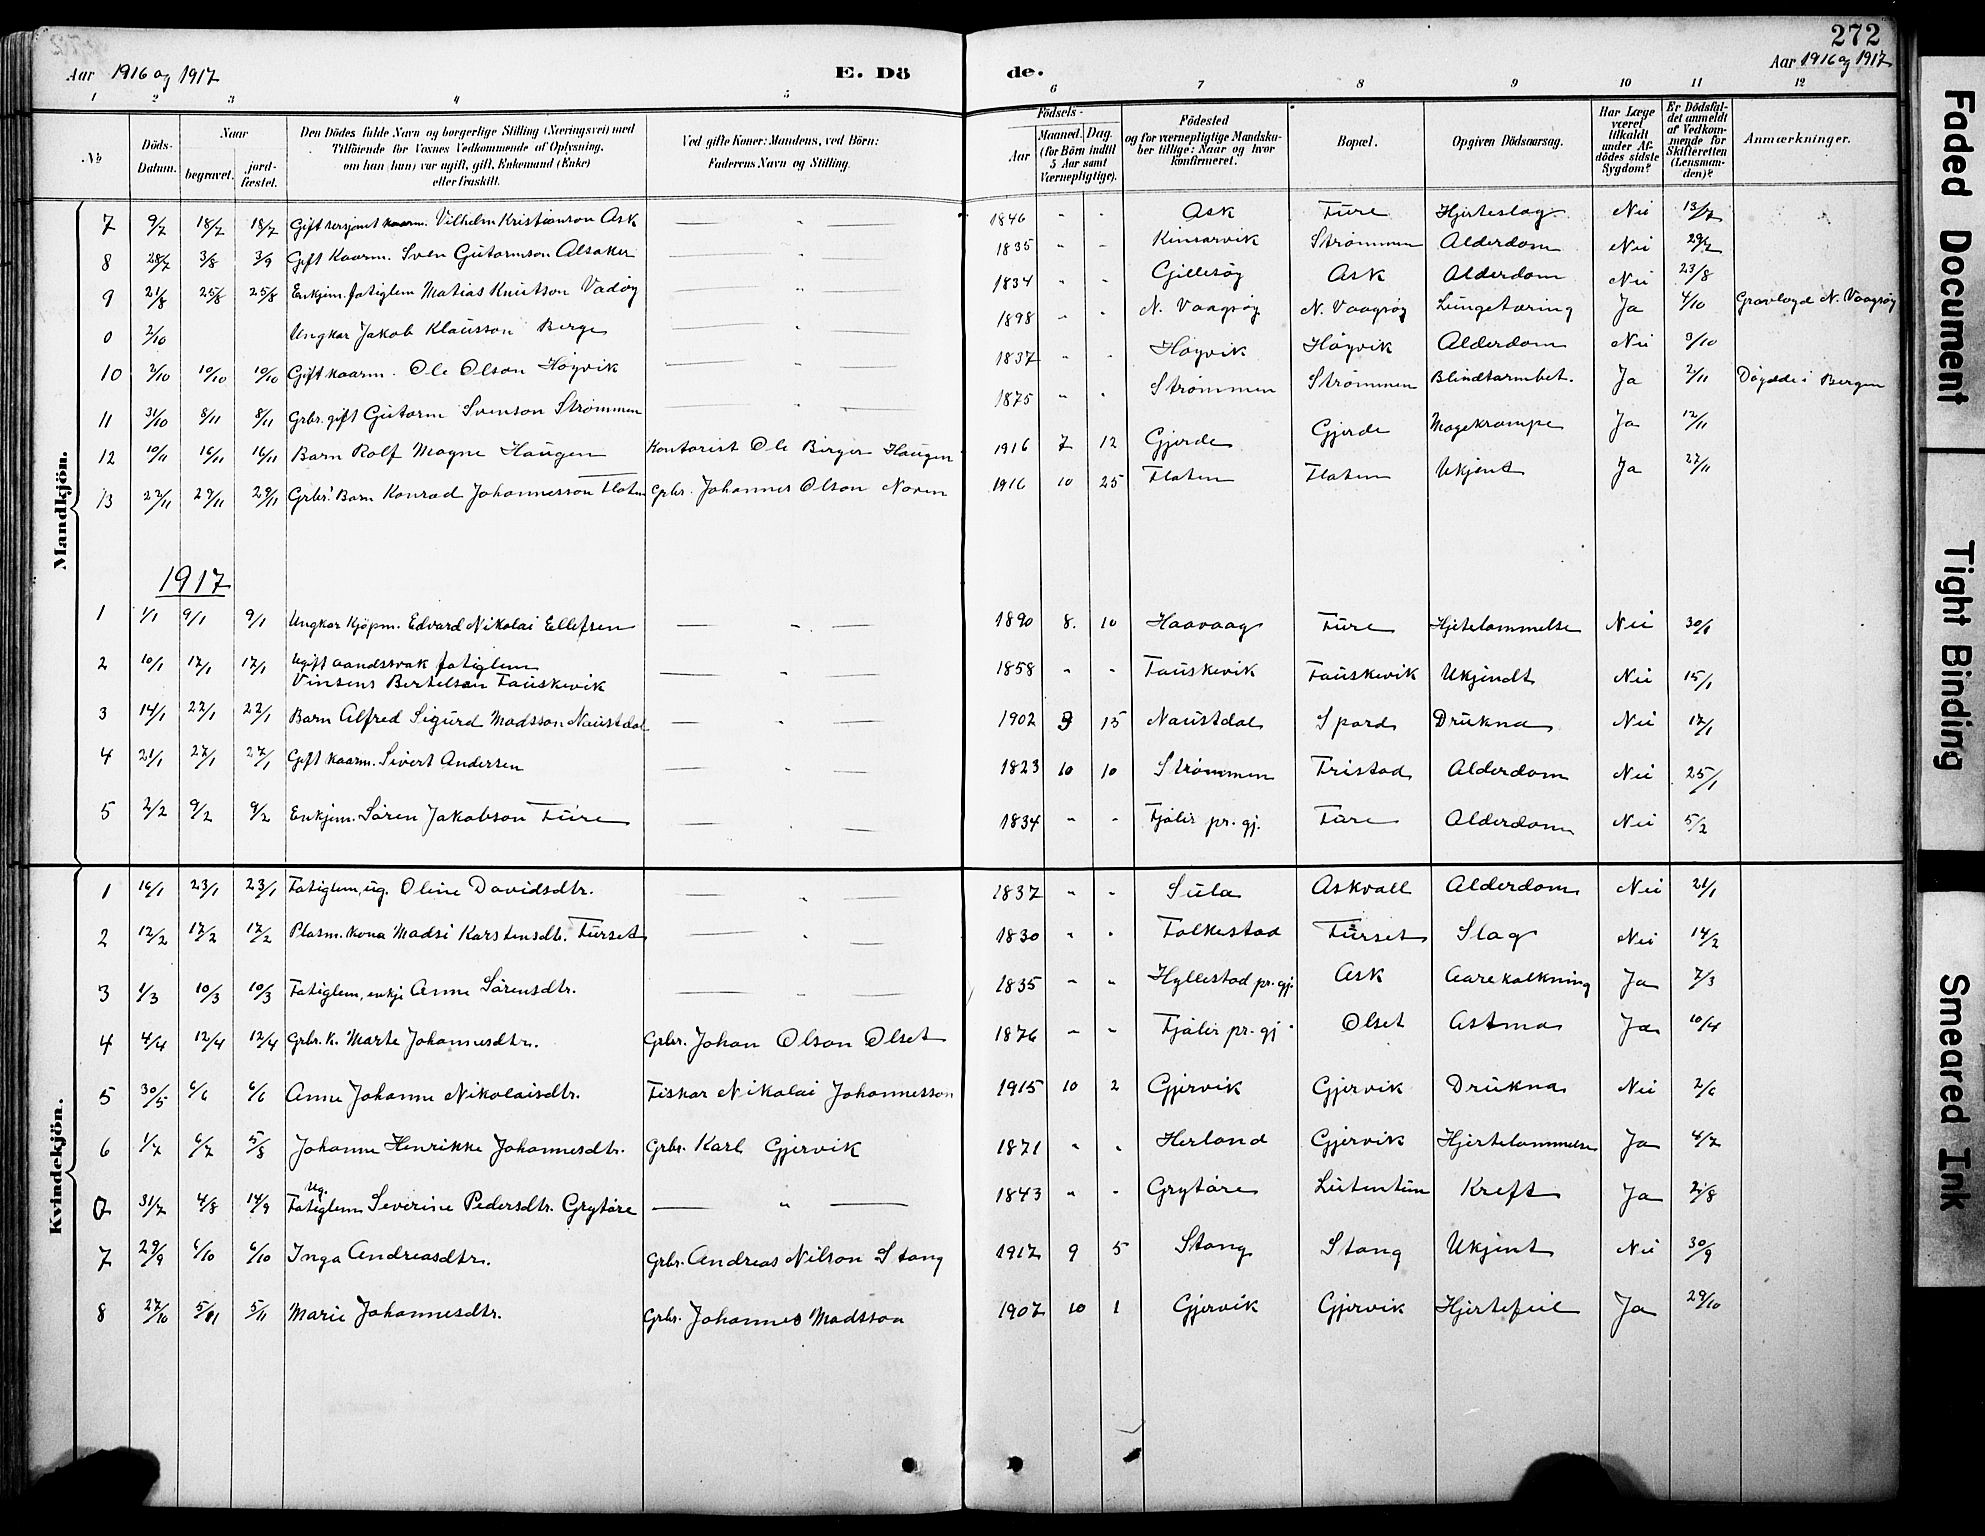 272
Aar 1916 og 1917 E. Dö de. Aar 1916 og 1917
1 2 3 4 5 6 7 8 9 10 11 12
No Döds-Datum. Naar begravet. jord-fæstet. Den Dödes fulde Navn og borgerlige Stilling (Næringsvei) med Tilföiende for Voxnes Vedkommende af Oplysning, om han (hun) var ugift, gift, Enkemand (Enke) eller fraskilt. Ved gifte Koner: Mandens, ved Börn: Faderens Navn og Stilling. Födsels- Aar Maaned. Dag. (for Börn indtil 5 Aar samt Værnepligtige). Födested og for værnepligtige Mandska-ber tillige: Naar og hvor konfirmeret. Bopæl. Opgiven Dödsaarsag. Har Læge været tilkaldt under Af-dödes sidste Sygdom? Er Dödsfal-det anmeldt af Vedkom-mende for Skifteretten (Lensman-den)? Anmærkninger.
Mandkjön.
7 9/7 18/7 18/7 Gift sersjant Vilhelm Kristianson Ask — " — 1846 " " Ask Füre Hjerteslag Nei 13/7
8 28/7 3/8 3/9 Gift Kaarm. Sven Gutormson Alsaker — " — 1835 " " Kinsarvik Strømmen Alderdom Nei 29/7
9 21/8 25/8 25/8 Enkjem. fatiglem Matias Knutson Vadøy — " — 1834 " " Gjillesøy Ask Alderdom Nei 23/8
0 2/10 Ungkar Jakob Klausson Berge — " — 1898 " " N. Vaagsøy N. Vaagsøy Lungetæring Ja 4/10 Gravlagd N. Vaagsøy
10 2/10 10/10 10/10 Gift kaarm. Ole Olson Høyvik — " — 1837 " " Høyvik Høyvik Alderdom Nei 3/10
11 31/10 8/11 8/11 Grbr. gift Gutorm Svenson Strømmen — " — 1875 " " Strømmen Strømmen Blindtarmbet. Ja 2/11 Døydde i Bergen
12 10/11 16/11 16/11 Barn Rolf Magne Haugen Kontorist Ole Birger Haugen 1916 7 12 Gjerde Gjerde Magekrampe Ja 12/11
13 22/11 29/11 29/11 Grbr. Barn Konrad Johannesson Flaten Grbr. Johannes Olson Noren 1916 10 25 Flaten Flaten Ukjent Ja 27/11
1917
1 1/1 9/1 9/1 Ungkar Kjøpm. Edvard Nikolai Ellefsen — " — 1890 8. 10 Haavaag Füre Hjertelammelse Nei 30/1
2 10/1 17/1 17/1 Ugift aandssvak fatiglem
Vinsens Bertelsen Fauskevik — " — 1858 " " Fauskevik Fauskevik Ukjendt Nei 15/1
3 14/1 22/1 22/1 Barn Alfred Sigurd Madsson Naustdal — " — 1902 3 15 Naustdal Spord Drukna Nei 17/1
4 21/1 27/1 27/1 Gift kaarm. Sivert Andersen — " — 1823 10 10 Strømmen Fristad Alderdom Nei 25/1
5 2/2 9/2 9/2 Enkjem. Søren Jakobson Füre — " — 1834 " " Fjaler pr. gj. Füre Alderdom Nei 5/2
Kvindekjön.
1 16/1 23/1 23/1 Fatiglem, ug. Oline Davidsdtr. — " — 1837 " " Sula Askvoll Alderdom Nei 21/1
2 12/2 17/2 17/2 Plasm. kona Madsi Karstensdtr. Furset — " — 1830 " " Folkestad Furset Slag Nei 14/2
3 1/3 10/3 10/3 Fatiglem, enkje Anne Sørensdtr. — " — 1835 " " Hyllestad pr. gj. Ask Aarekalkning Ja 7/3
4 4/4 12/4 12/4 Grbr. k. Marte Johannesdtr. Grbr. Johan Olson Olset 1876 " " Fjaler pr. gj. Olset Astma Ja 10/4
5 30/5 6/6 6/6 Anne Johanne Nikolaisdtr. Fiskar Nikolai Johannesson 1915 10 2 Gjervik Gjervik Drukna Nei 2/6
6 1/7 6/7 5/8 Johanne Henrikke Johannesdtr. Grbr. Karl Gjervik 1871 " " Herland Gjervik Hjertelammelse Ja 4/7
7 31/7 4/8 14/9 Ug. Fatiglem Severine Pedersdtr. Grytøre — " — 1843 " " Grytøre Lutentun Kreft Ja 2/8
7 29/9 6/10 6/10 Inga Andreasdtr. Grbr. Andreas Nilson Stang 1917 9 5 Stang Stang Ukjent Nei 30/9
8 27/10 5/11 5/11 Marie Johannesdtr. Grbr. Johannes Madsson 1907 10 1 Gjervik Gjervik Hjertefeil Ja 29/10
Faded Document
Tight Binding
Smeared Ink